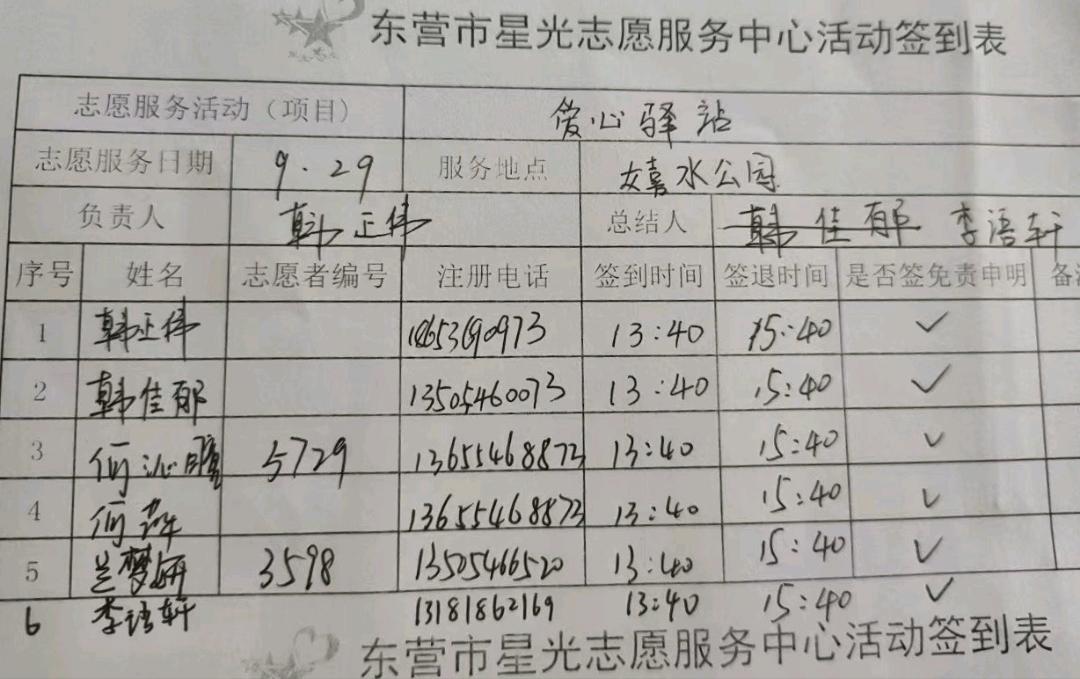 东营市星光志愿服务中心活动签到表
志愿服务活动（项目） 爱心驿站
志愿服务日期 9.29 服务地点 水公园
负责人 韩正伟 总结人 韩佳郁 李语轩
序号 姓名 志愿者编号 注册电话 签到时间 签退时间 是否签免责申明
1 韩正伟 13:40 15:40 ✓
2 韩佳郁 13505460073 13:40 15:40 ✓
3 何沁 5729 13655468873 13:40 15:40 ✓
4 何 13655468873 13:40 15:40 ✓
5 兰梦妍 3598 13505466520 13:40 15:40 ✓
6 李语轩 13181862169 13:40 15:40 ✓
东营市星光志愿服务中心活动签到表